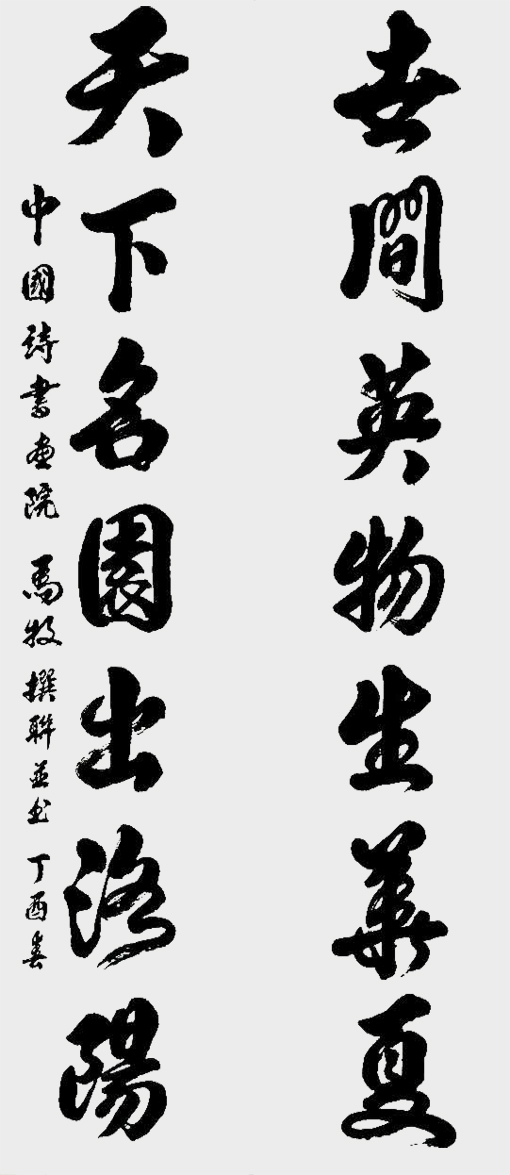 世間英物生華夏
天下名園出洛陽
中國詩書畫院 馬牧 撰聯並書 丁酉春